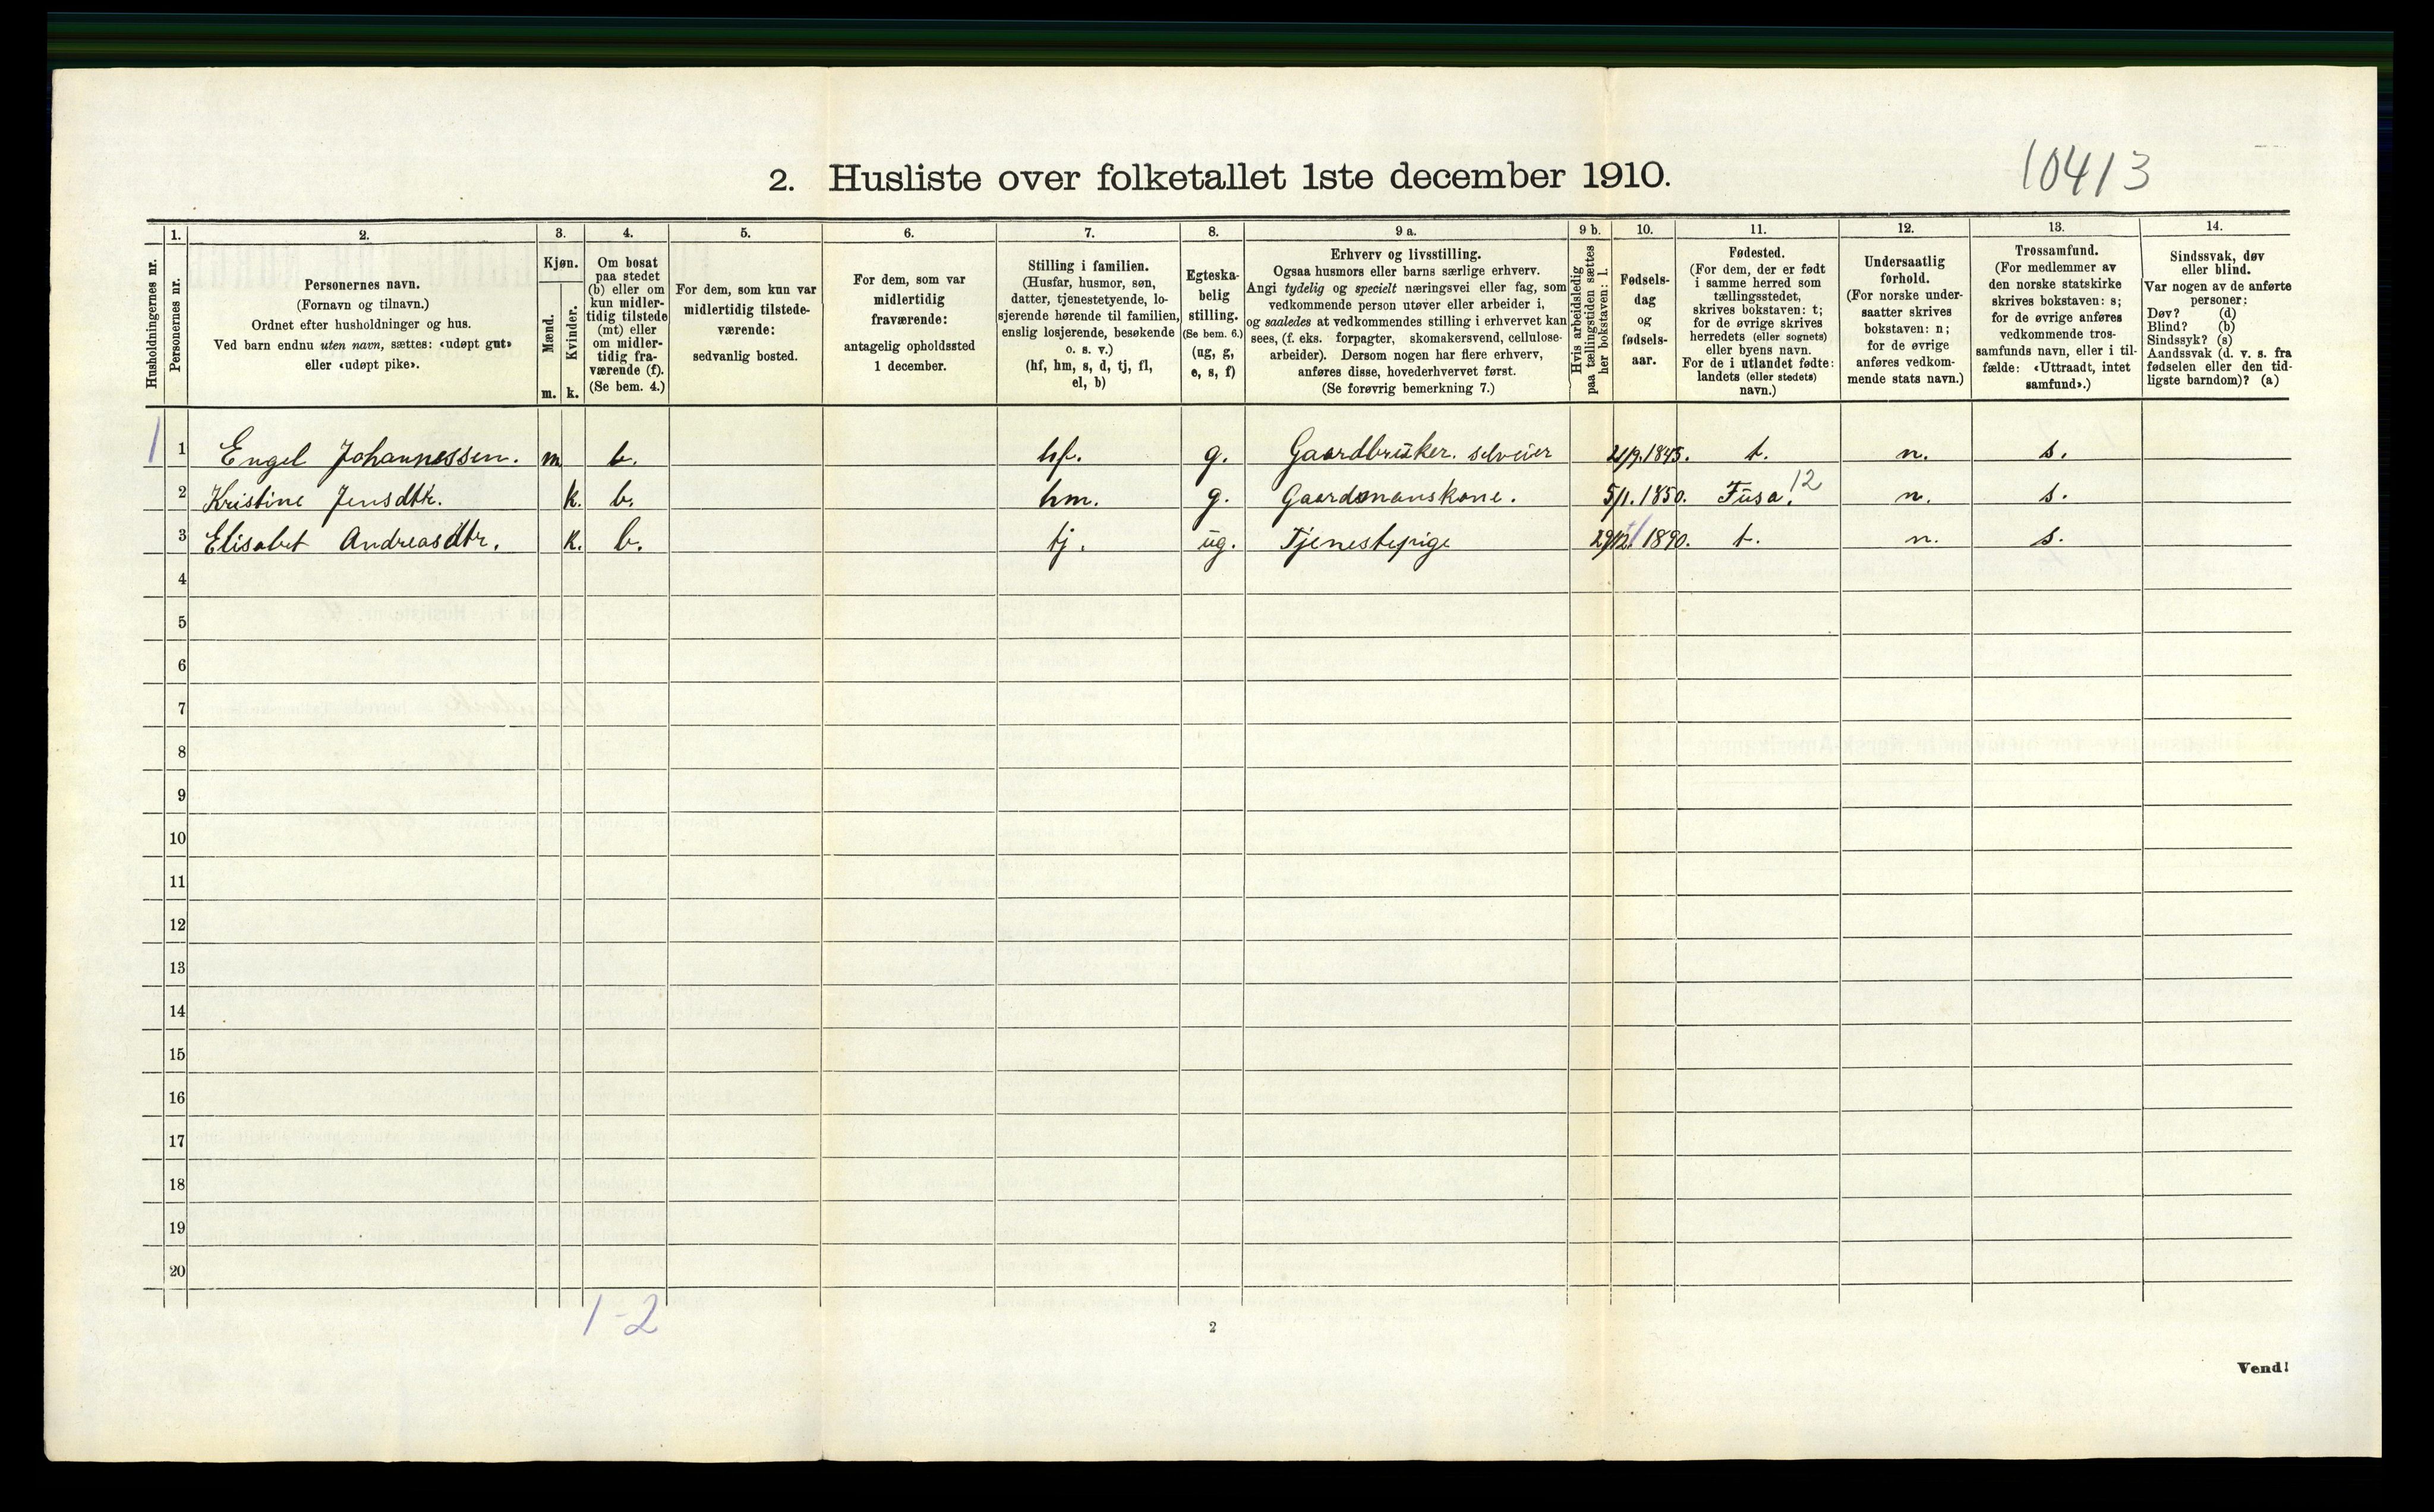 10413
2. Husliste over folketallet 1ste december 1910.
Husholdningernes nr.
1.
Personernes nr.
2.
Personernes navn.
(Fornavn og tilnavn.)
Ordnet efter husholdninger og hus.
Ved barn endnu uten navn, sættes: «udøpt gut»
eller «udøpt pike».
3.
Kjøn.
Mænd.
Kvinder.
m. k.
4.
Om bosat
paa stedet
(b) eller om
kun midler-
tidig tilstede
(mt) eller
om midler-
tidig fra-
værende (f).
(Se bem. 4.)
5.
For dem, som kun var
midlertidig tilstede-
værende:
sedvanlig bosted.
6.
For dem, som var
midlertidig
fraværende:
antagelig opholdssted
1 december.
7.
Stilling i familien.
(Husfar, husmor, søn,
datter, tjenestetyende, lo-
sjerende hørende til familien,
enslig losjerende, besøkende
o. s. v.)
(hf, hm, s, d, tj, fl,
el, b)
8.
Egteska-
belig
stilling.
(Se bem. 6.)
(ug, g,
e, s, f)
9 a.
Erhverv og livsstilling.
Ogsaa husmors eller barns særlige erhverv.
Angi tydelig og specielt næringsvei eller fag, som
vedkommende person utøver eller arbeider i,
og saaledes at vedkommendes stilling i erhvervet kan
sees, (f. eks. forpagter, skomakersvend, cellulose-
arbeider). Dersom nogen har flere erhverv,
anføres disse, hovederhvervet først.
(Se forøvrig bemerkning 7.)
9 b.
Hvis arbeidsledig
paa tællingstiden sættes
her bokstaven: l.
10.
Fødsels-
dag
og
fødsels-
aar.
11.
Fødested.
(For dem, der er født
i samme herred som
tællingsstedet,
skrives bokstaven: t;
for de øvrige skrives
herredets (eller sognets)
eller byens navn.
For de i utlandet fødte:
landets (eller stedets)
navn.)
12.
Undersaatlig
forhold.
(For norske under-
saatter skrives
bokstaven: n;
for de øvrige
anføres vedkom-
mende stats navn.)
13.
Trossamfund.
(For medlemmer av
den norske statskirke
skrives bokstaven: s;
for de øvrige anføres
vedkommende tros-
samfunds navn, eller i til-
fælde: «Uttraadt, intet
samfund».)
14.
Sindssvak, døv
eller blind.
Var nogen av de anførte
personer:
Døv? (d)
Blind? (b)
Sindssyk? (s)
Aandssvak (d. v. s. fra
fødselen eller den tid-
ligste barndom)? (a)
1 1 Engel Johannessen. m b. hf. g. Gaardbruker. selveier 21/9.1845. t. n. s.
2 Kristine Jensdtr. k. b. hm. g. Gaardmanskone. 5/1.1850. Fusa. 12 n. s.
3 Elisabet Andreasdtr. k. b. tj. ug. Tjenestepige 29/12. 1890. t. n. s.
4
5
6
7
8
9
10
11
12
13
14
15
16
17
18
19
20
1-2
2
Vend!